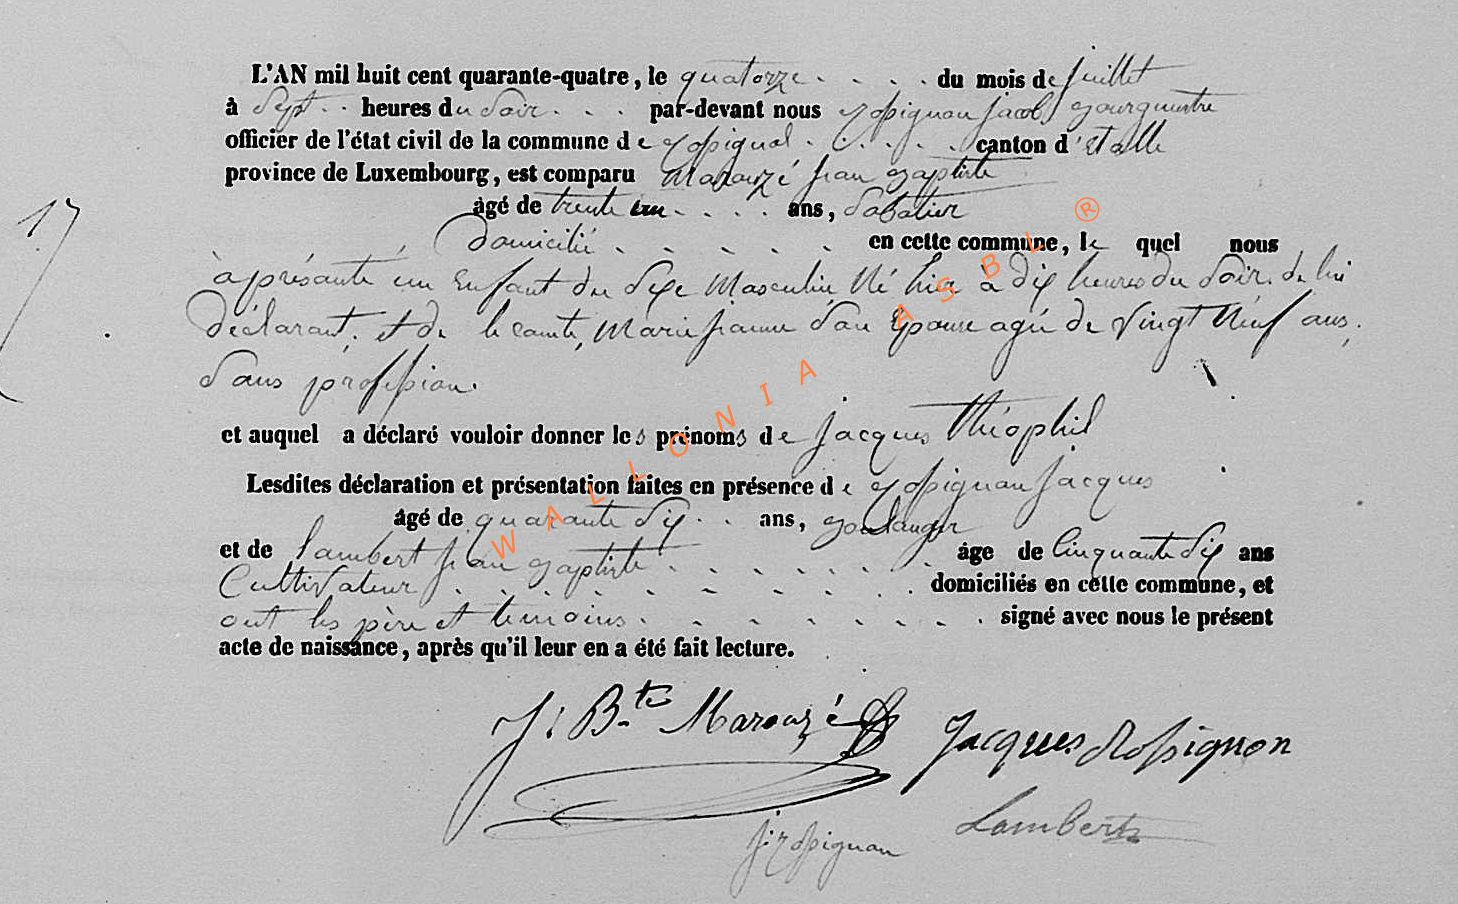 L'AN mil huit cent quarante-quatre, le quatorze . . . . du mois de juillet
à Sept . . heures du Soir . . . par-devant nous Rossignon Jacob Bourguestre
officier de l'état civil de la commune de Rossignol . . . . . canton d'Etalle
province de Luxembourg, est comparu Marouzé Jean Baptiste
17
âgé de trente un . . . . ans, Sabatier
domicilié . . . . . . en cette commune, le quel nous
à présanté un Enfant du Sexe Masculin Né hier à dix heures du Soir. de lui
déclarant, et de lecomte, Marie jeanne Son Epouse agée de Vingt Neuf ans,
Sans profession.
et auquel a déclaré vouloir donner les prénoms de Jacques Théophil
Lesdites déclaration et présentation faites en présence de Rossignon Jacques
âgé de quarante Six . . ans, Boulanger
et de Lambert Jean Baptiste . . . . . . . âge de Cinquante Six ans
Cultivateur . . . . . . . . domiciliés en cette commune, et
ont les père et temoins . . . . . . . . signé avec nous le présent
acte de naissance, après qu'il leur en a été fait lecture.
J: Bte Marouzé Jacques Rossignon
J: Rossignon Lambert
WALLONIA ASBL ®